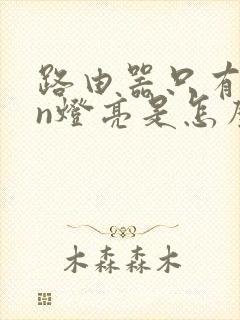 路由器只有
n燈亮是怎
木森森木